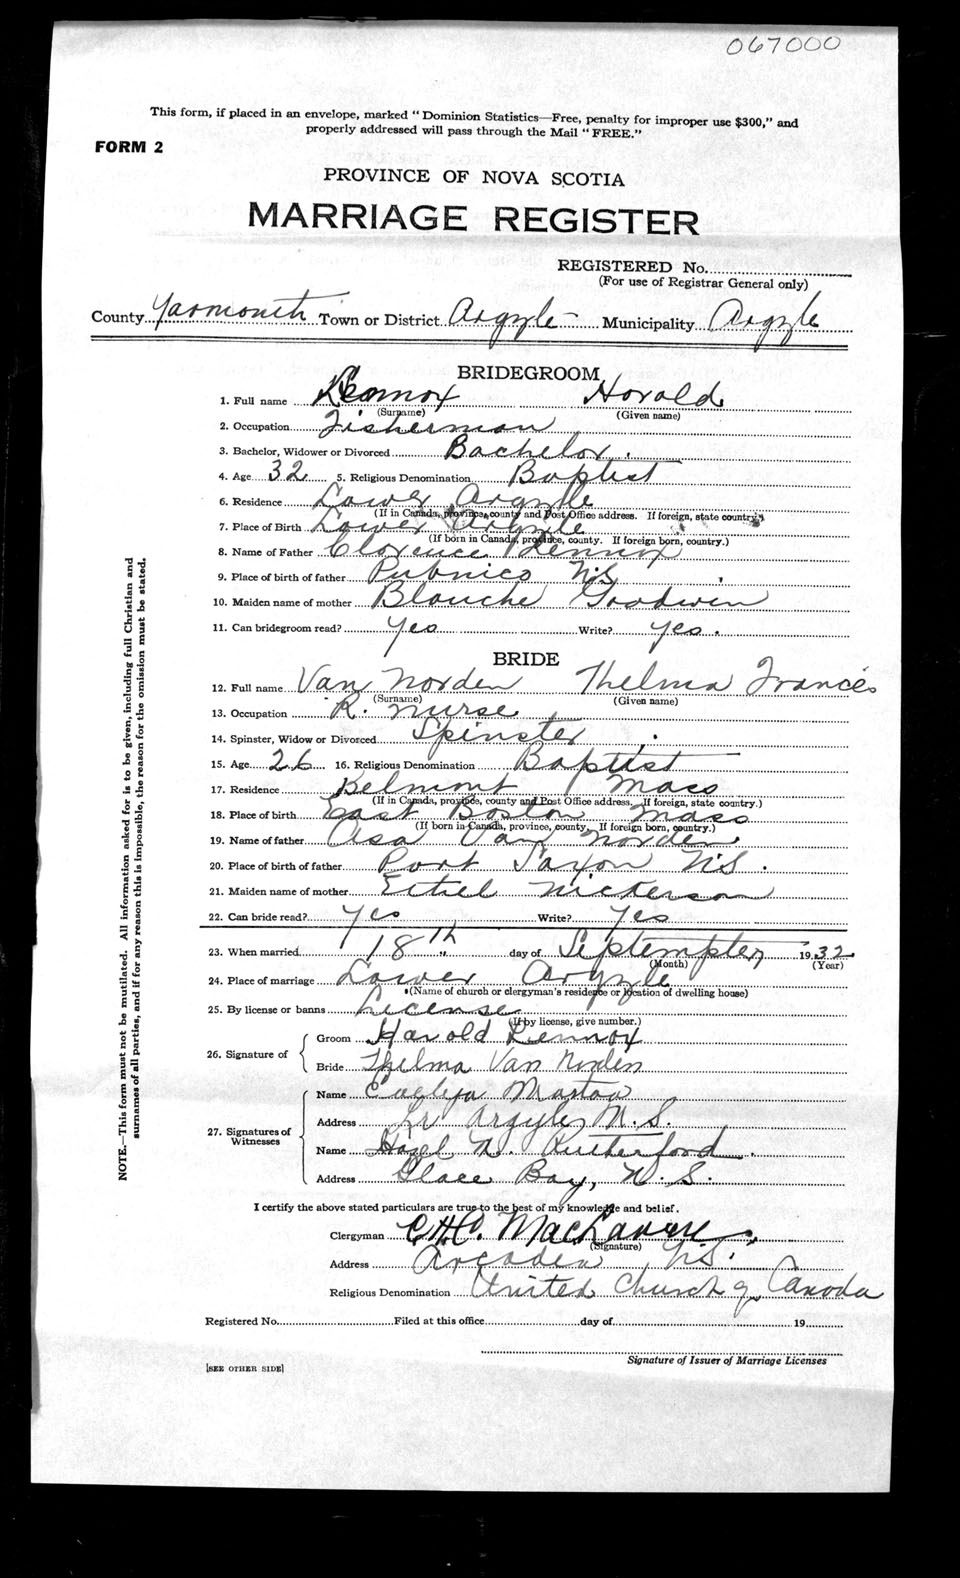 067000
This form, if placed in an envelope, marked "Dominion Statistics—Free, penalty for improper use $300," and
properly addressed will pass through the Mail "FREE."
FORM 2
PROVINCE OF NOVA SCOTIA
MARRIAGE REGISTER
REGISTERED No.
(For use of Registrar General only)
County Yarmouth Town or District Argyle Municipality Argyle
BRIDEGROOM
1. Full name Lennox Harald
(Surname) (Given name)
2. Occupation Fisherman
3. Bachelor, Widower or Divorced Bachelor.
4. Age 32 5. Religious Denomination Baptist
6. Residence Lower Argyle
(If in Canada, province, county and Post Office address. If foreign, state country.)
7. Place of Birth Lower Argyle
(If born in Canada, province, county. If foreign born, country.)
8. Name of Father Clarence Lennox
9. Place of birth of father Pubnico N.S.
10. Maiden name of mother Blanche Goodwin
11. Can bridegroom read? Yes Write? Yes.
BRIDE
12. Full name Van Norden Thelma Francis
(Surname) (Given name)
13. Occupation R. Nurse
14. Spinster, Widow or Divorced Spinster
15. Age 26 16. Religious Denomination Baptist
17. Residence Belmont Mass
(If in Canada, province, county and Post Office address. If foreign, state country.)
18. Place of birth East Boston Mass
(If born in Canada, province, county. If foreign born, country.)
19. Name of father Asa Van Norden
20. Place of birth of father Port Saxon N.S.
21. Maiden name of mother Ethel Nickerson
22. Can bride read? Yes Write? Yes
23. When married 18th day of Septempter 1932
(Month) (Year)
24. Place of marriage Lower Argyle
(Name of church or clergyman's residence or location of dwelling house)
25. By license or banns License
(If by license, give number.)
26. Signature of
Groom Harold Lennox
Bride Thelma Van Norden
27. Signatures of Witnesses
Name
Address Lr Argyle, N.S.
Name Hazel N. Rutherford
Address Glace Bay, N.S.
I certify the above stated particulars are true to the best of my knowledge and belief.
Clergyman
(Signature)
Address Arcadia N.S.
Religious Denomination United Church of Canada
Registered No. Filed at this office day of 19
Signature of Issuer of Marriage Licenses
[SEE OTHER SIDE]
NOTE.—This form must not be mutilated. All information asked for is to be given, including full Christian and
surnames of all parties, and if for any reason this is impossible, the reason for the omission must be stated.